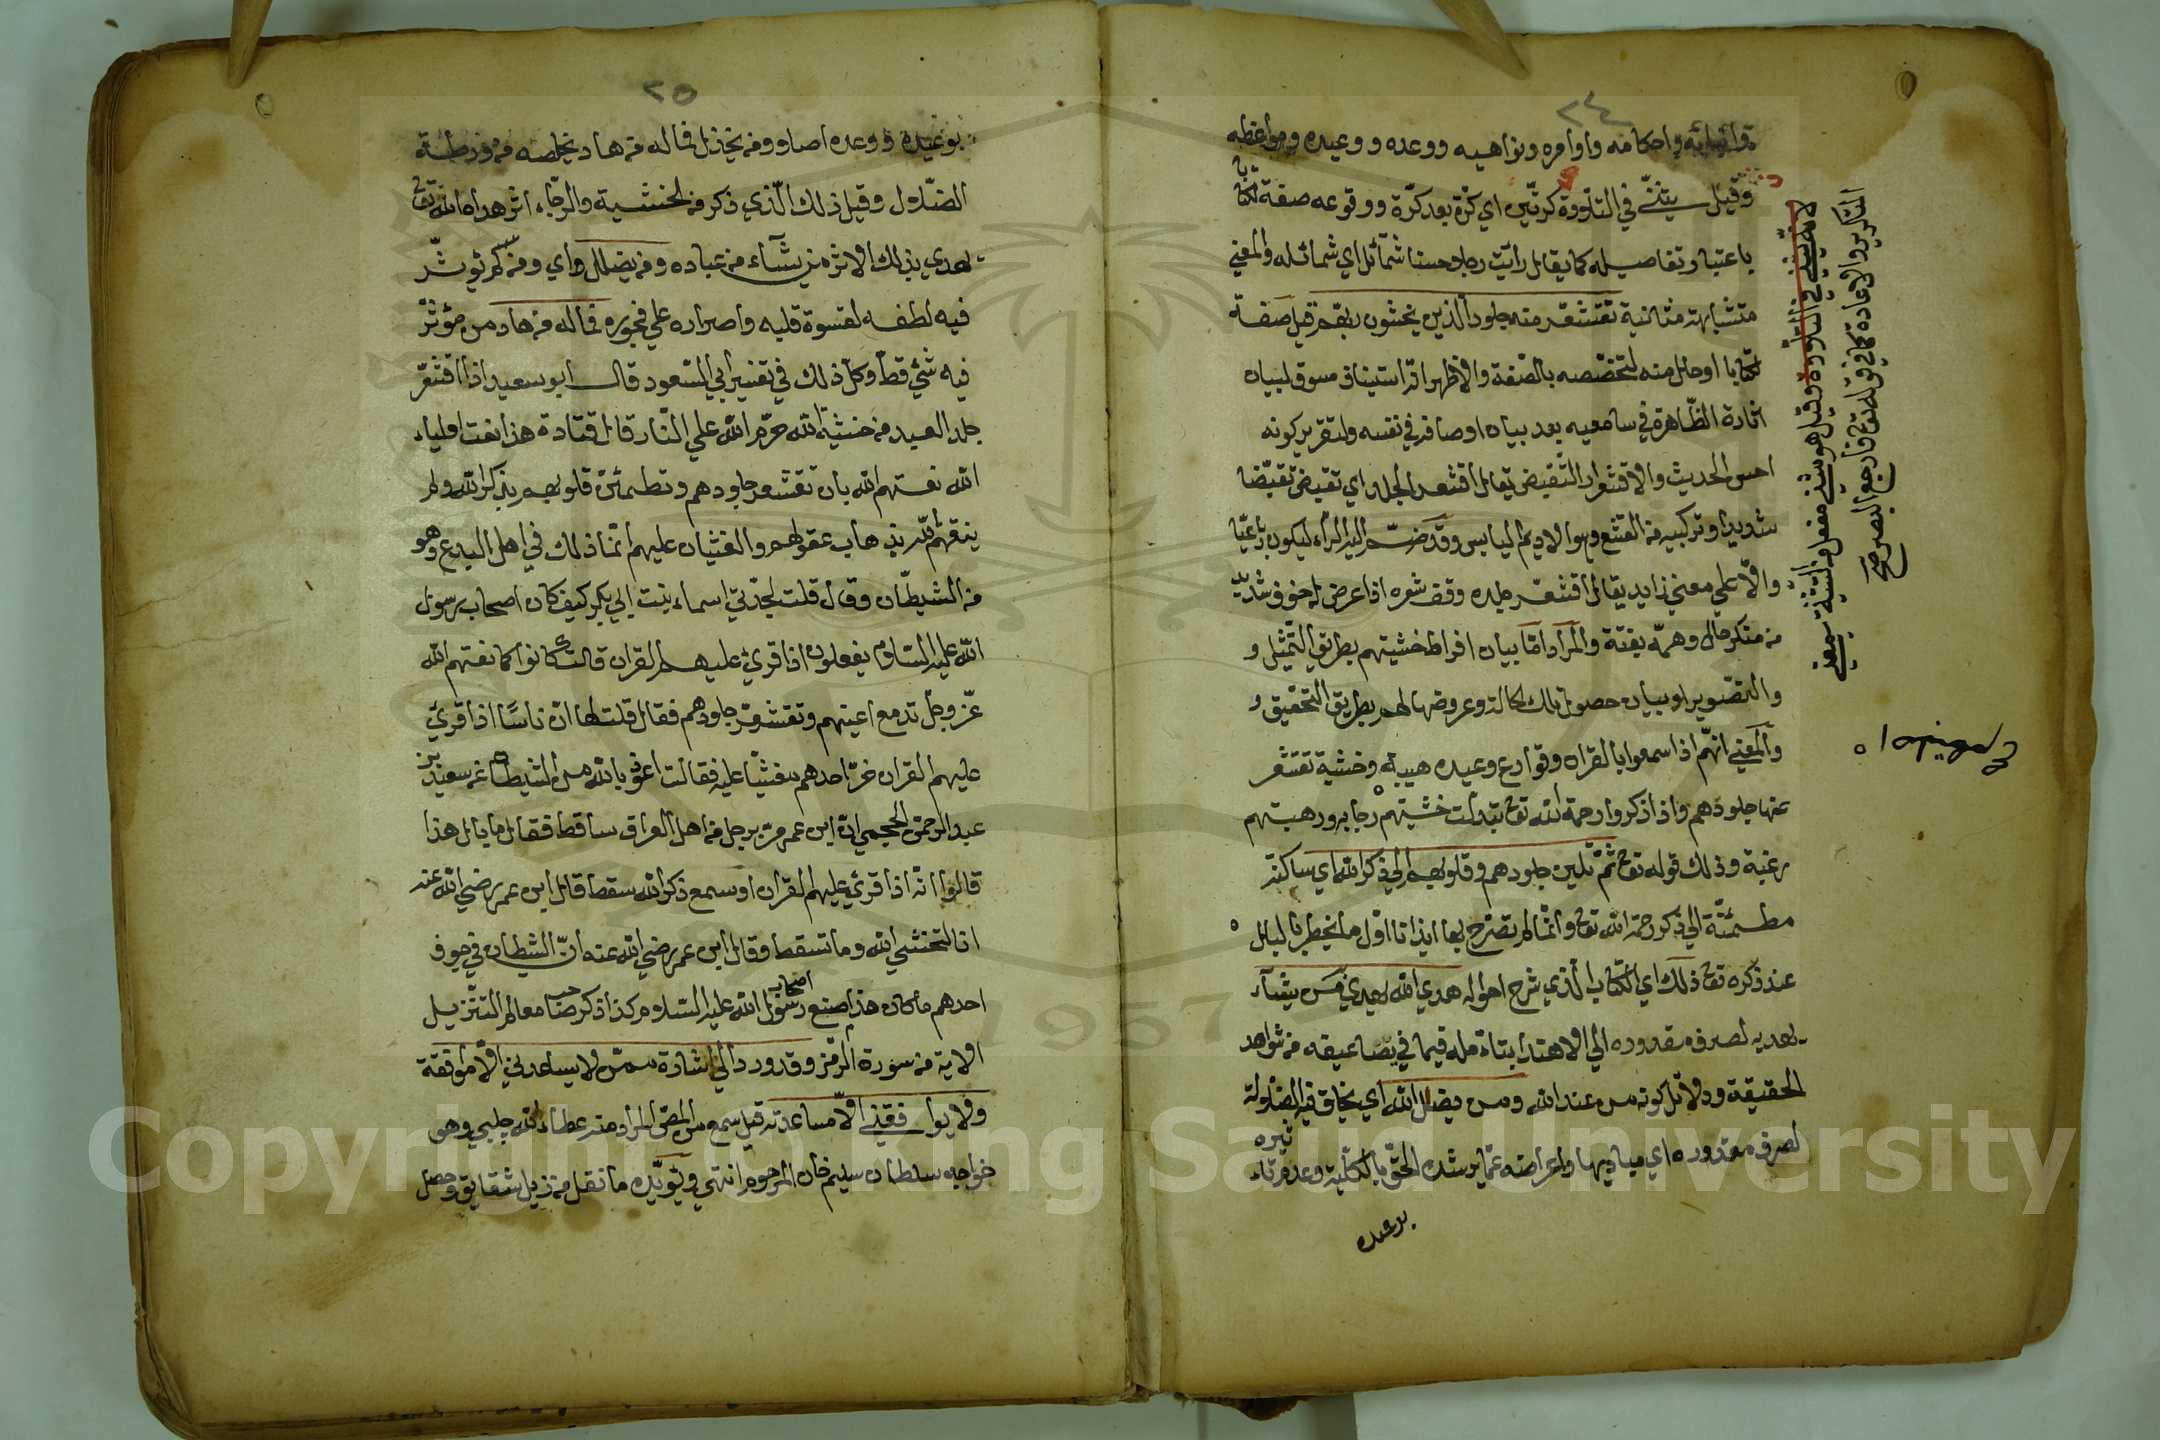 ٢٤
وانبائه واحكامه واوامره ونواهيه ووعده ووعيده ومواعظه
وقيل يثنى في التلاوة كرتين اي كرّة بعد كرّة ووقوعه صفة لكتابا
باعتبار تفاصيله كما يقال رايت رجلا حسنا شمائل اي شمائله والمعنى
متشابهة مثانية تقشعرّ منه جلود الذين يخشون ربهم قيل صفة
لكتابا او حال منه لتخصّصه بالصفة والاظهر انه استيناف مسوق لبيان
اثاره الظّاهرة في سامعيه بعد بيان اوصافه في نفسه ولتقرير كونه
احسن الحديث والاقشعرار التقبّض يقال اقشعر الجلد اي تقبّض تقبّضا
شديدا وتركيبه من القشع وهو الاديم اليابس وقد ضمّ اليه الرّاء ليكون رباعيّا
والّا على معنى زايد يقال اقشعرّ جلده وقف شعره اذا عرض له خوف شديد
من منكر هائل دهمه بغتة والمراد امّا بيان افراط خشيتهم بطريق التّمثيل و
والتصوير او بيان حصول تلك الحالة وعروضها لهم بطريق التحقيق و
والمعنى انهم اذا سمعوا بالقران وقوارع وعيده هيبة وخشية تقشعر
عنها جلودهم واذا ذكروا رحمة الله تعالى تبدلت خشيتهم رجاء ورهبتهم
رغبة وذلك قوله تعالى ثم تلين جلودهم وقلوبهم الى ذكر الله اي ساكنة
مطمئنّة الى ذكر رحمة الله تعالى وانما لم تصرح بها ايذانا اول ما يخطر بالبال
عند ذكره تعالى ذلك اي الكتاب الذي شرح احواله هدى الله يهدي من يشاء
يهديه لصرف مقدوره الى الاهتداء بتأمله فيما في تضاعيفه من شواهد
الحقيقة ودلائل كونه من عند الله ومن يضلل الله اي يخلق فيه الضّلالة
لصرف مقدوره اي مباديها واعراضه عمّا يرشده الى الحق بالكلية وعدم تأثره
بوعيده
لانه يثنى في التلاوة وقيل هو مثنى مفعل من التثنية بمعنى
التكرير والاعادة كما في قوله تعالى فارجع البصر صح
٢٥
بوعيده ووعده اصلا ومن يخذل فماله من هاد يخلصه من ورطة
الضّلال وقيل ذلك الّذي ذكر من الخشية والرّجاء اثر هداه الله تعالى
يهدي بذلك الاثر من يشاء من عباده ومن يضلل اي ومن لم يؤثّر
فيه لطفه لقسوة قلبه واصراره على فجوره فما له من هاد من مؤثّر
فيه شئ قط وكل ذلك في تفسير ابي السّعود قال ابو سعيد اذا اقشعرّ
جلد العبد من خشية الله حرّم الله على النّار قال قتادة هذا نعت اولياء
الله نعتهم الله بان تقشعر جلودهم وتطمئنّ قلوبهم بذكر الله ولم
ينعتهم الله بذهاب عقولهم والغشيان عليهم انّما ذلك في اهل البدع وهو
من الشيطان وقال قلت لجدّتي اسماء بنت ابي بكر كيف كان اصحاب رسول
الله عليه السّلام يفعلون اذا قرئ عليهم القران قالت كانوا كما نعتهم الله
عزّ وجل تدمع اعينهم وتقشعرّ جلودهم فقال قلت لها انّ ناسًا اذا قرئ
عليهم القران خرّ احدهم مغشيا عليه فقالت اعوذ بالله من الشيطان عن سعيد بن
عبد الرحمن الجحمي انّ ابن عمر مرّ برجل من اهل العراق ساقط فقال ما بال هذا
قالوا انّه اذا قرئ عليهم القران او سمع ذكر الله سقط قال ابن عمر رضي الله عنه
انا لنخشى الله وما نسقط وقال ابن عمر رضي الله عنه انّ الشيطان في جوف
احدهم ما كان هذا صنع اصحاب رسول الله عليه السّلام كذا ذكر صاحب معالم التنزيل
الاية من سورة الزّمر وقد ورد الى اشارة ممّن لا يساعدني الّا موافقة
ولا يوافقني الّا مساعدته قيل سمع من المصنّف المراد منه عطاء الله چلبي وهو
خواجه سلطان سليم خان المرحوم انتهى ويؤيّده ما نقل من ذيل شقايق وحصل
Copyright © King Saud University
1957